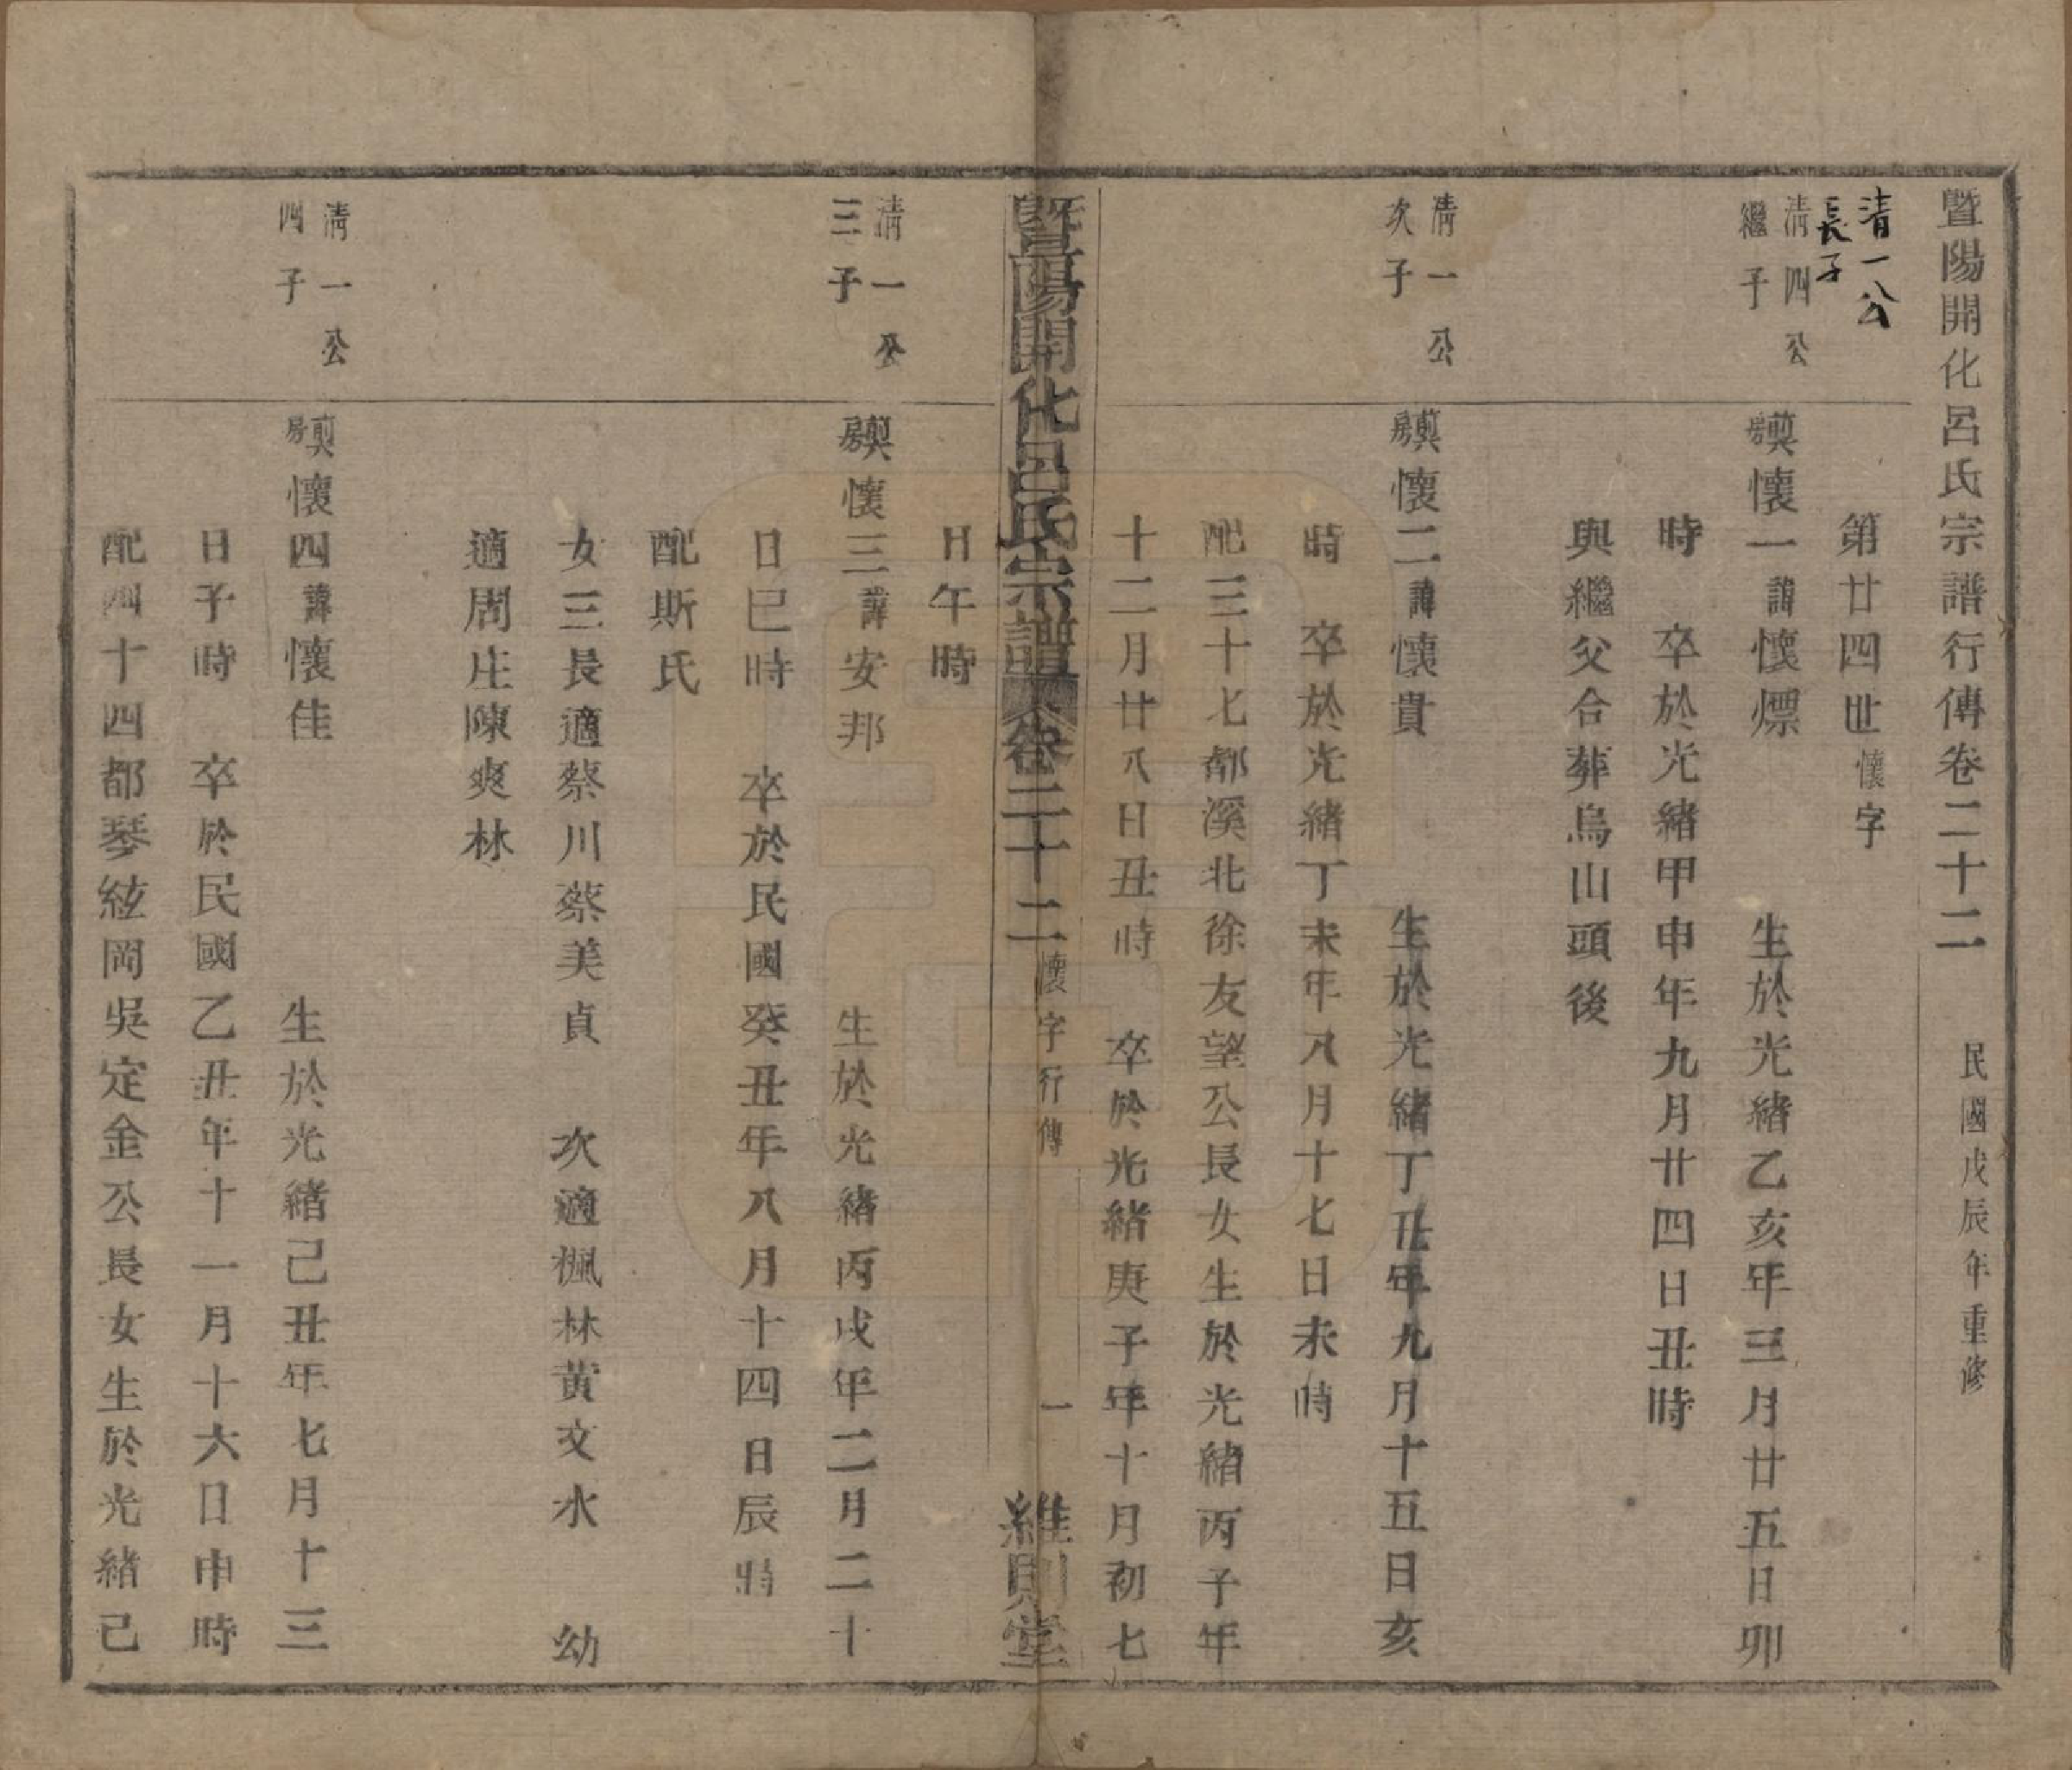 暨陽開化呂氏宗譜行傳卷二十二　民國戊辰年重修
第廿四世懷字
清一公長子
清四公繼子
巽房懷一諱懷熛　生於光緒乙亥年三月廿五日卯
時　卒於光緒甲申年九月廿四日丑時
與繼父合葬烏山頭後
清一公次子
巽房懷二諱懷貴　生於光緒丁丑年九月十五日亥
時　卒於光緒丁未年八月十七日未時
配三十七都溪北徐友望公長女生於光緒丙子年
十二月廿八日丑時　卒於光緒庚子年十月初七
暨陽開化呂氏宗譜卷二十二懷字行傳　一　維則堂
日午時
清一公三子
巽房懷三諱安邦　生於光緒丙戌年二月二十
日巳時　卒於民國癸丑年八月十四日辰時
配斯氏
女三長適蔡川蔡美貞　次適楓林黃文水　幼
適周庄陳爽林
清一公四子
巽房懷四諱懷佳　生於光緒己丑年七月十三
日子時　卒於民國乙丑年十一月十六日申時
配四十四都琴絃岡吳定金公長女生於光緒己